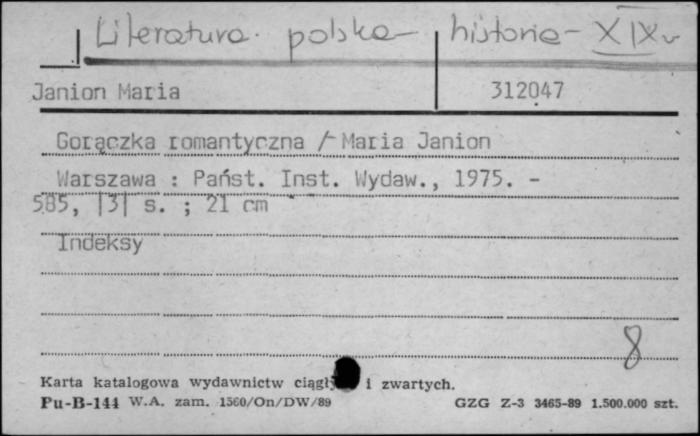 Literatura polska - historia - XIX w
Janion Maria 312047
Gorączka romantyczna / Maria Janion
Warszawa : Państ. Inst. Wydaw., 1975. -
585, |3| s. ; 21 cm
Indeksy
8
Karta katalogowa wydawnictw ciągły i zwartych.
Pu-B-144 W.A. zam. 1560/On/DW/89 GZG Z-3 3465-89 1.500.000 szt.